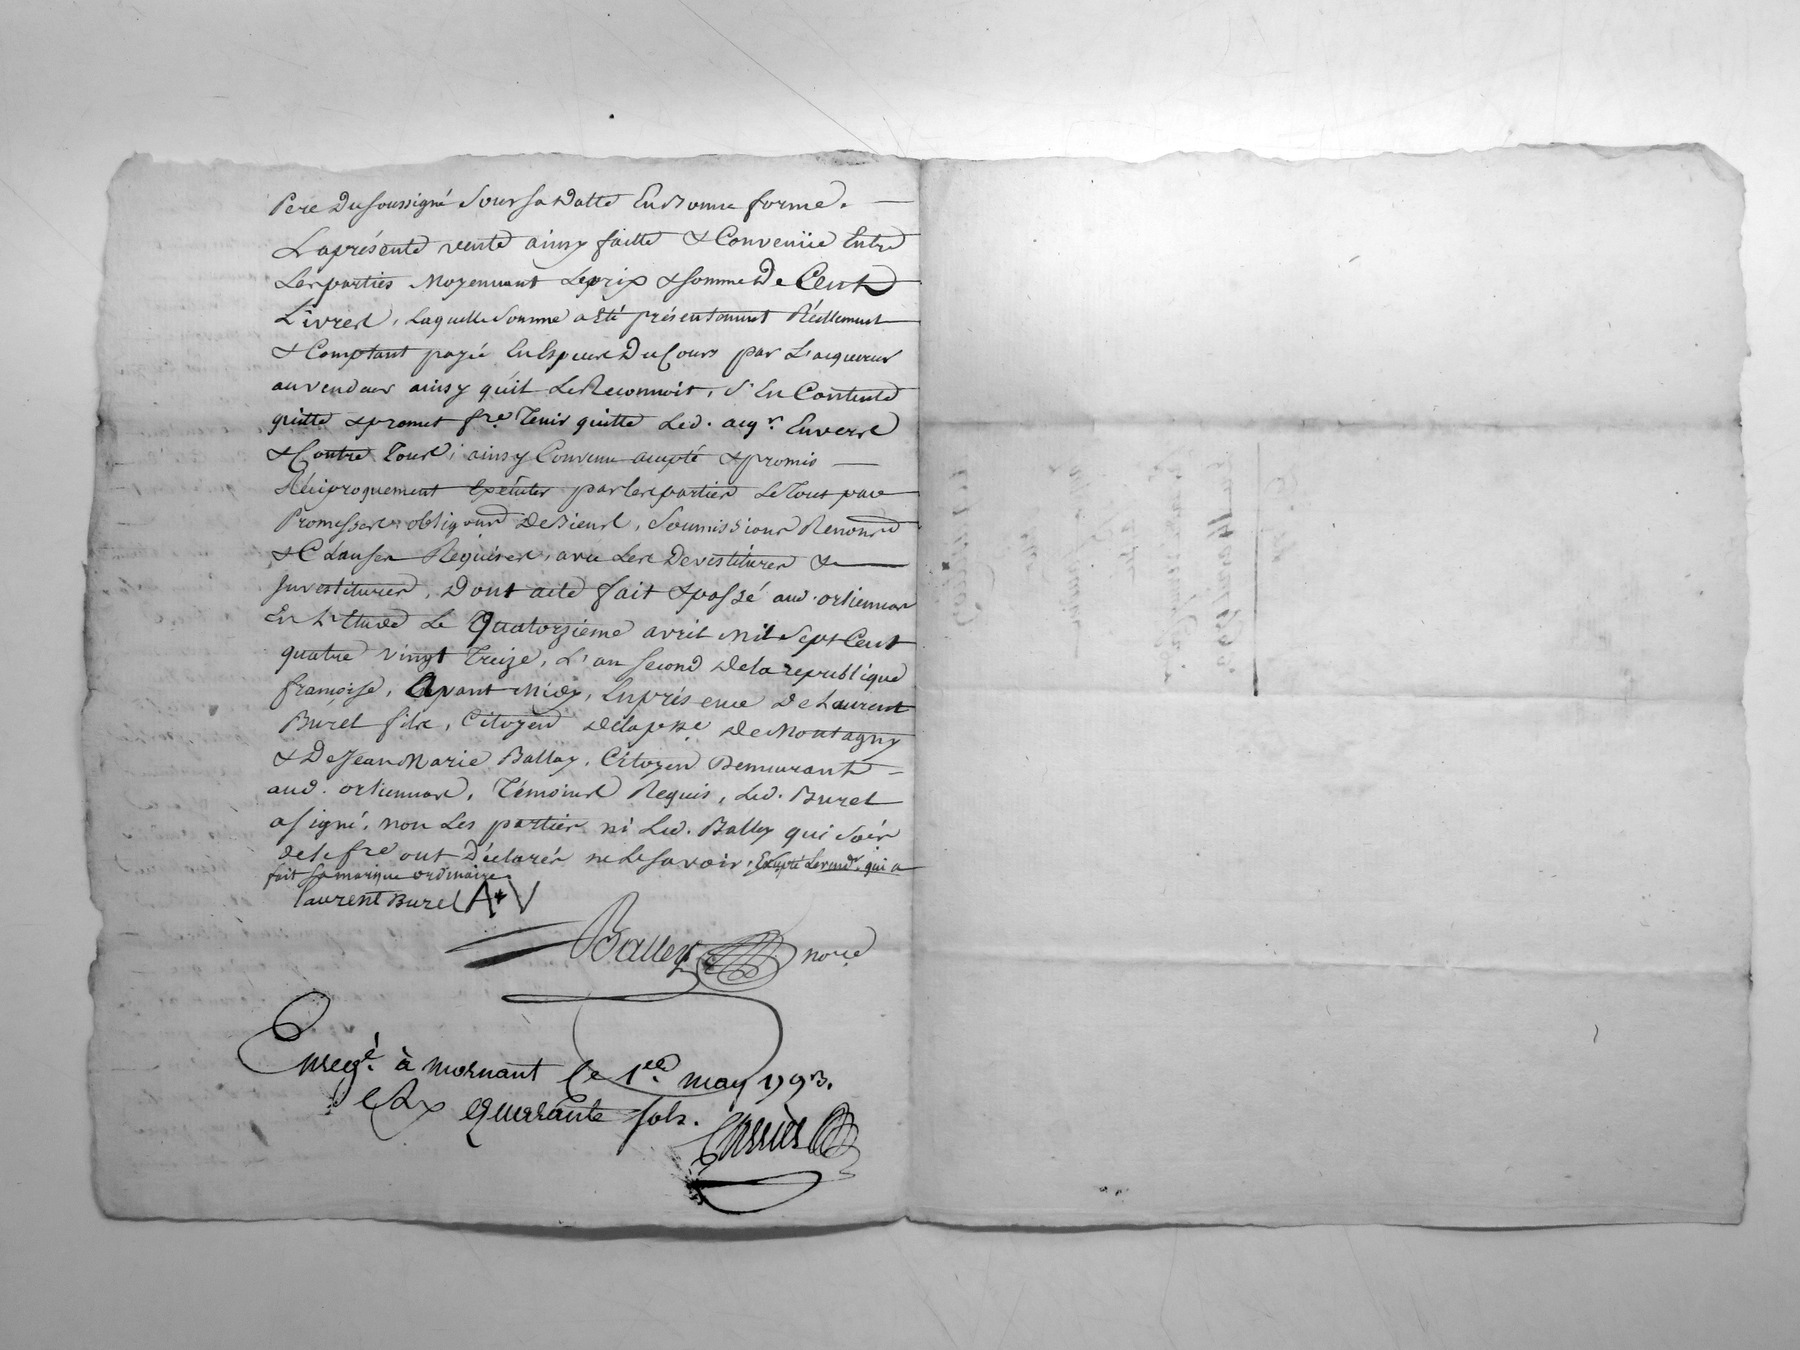 Pere Du soussigné Sous sa Datte En Bonne forme. —
La présente vente ainsy faitte & Convenüe Entre
Les parties Moyennant Le prix & somme De Cent
Livres, Laquelle Somme a Eté présentement Réellement
& Comptant payée En Espèces Du Cours par L'acquereur
au vendeur ainsy qu'il Le Reconnoit, S'En Contente
quitte & promet f.re Tenir quitte Led. acq.r Envers
& Contre Tous; ainsy Convenu accepté & promis —
Réciproquement Exécuter par les parties Le Tout par
Promesses obligaons De Biens, Soumissions Renonons
& Clauses Requises, avec Les Devestitures &
Investitures, Dont acte fait & passé aud. orliennas
En L'Etude Le Quatorzieme avril Mil Sept Cent
quatre vingt Treize, L'an second De la republique
françoise, Avant Midy, En présence De Laurent
Buret fils, Citoyen De la psse De Montagny
& De Jean Marie Balley, Citoyen Demeurant —
aud. orliennas, Témoins Requis, Led. Buret
a signé, non Les parties ni Led. Balley qui Sur
de ce f.re ont Déclarés ne Le savoir, Excepté Le vendr. qui a
fait sa marque ordinaire.
laurent Buret A V
Balley nore
Enregé. à mornant le 1er may 1793.
quarante sols.